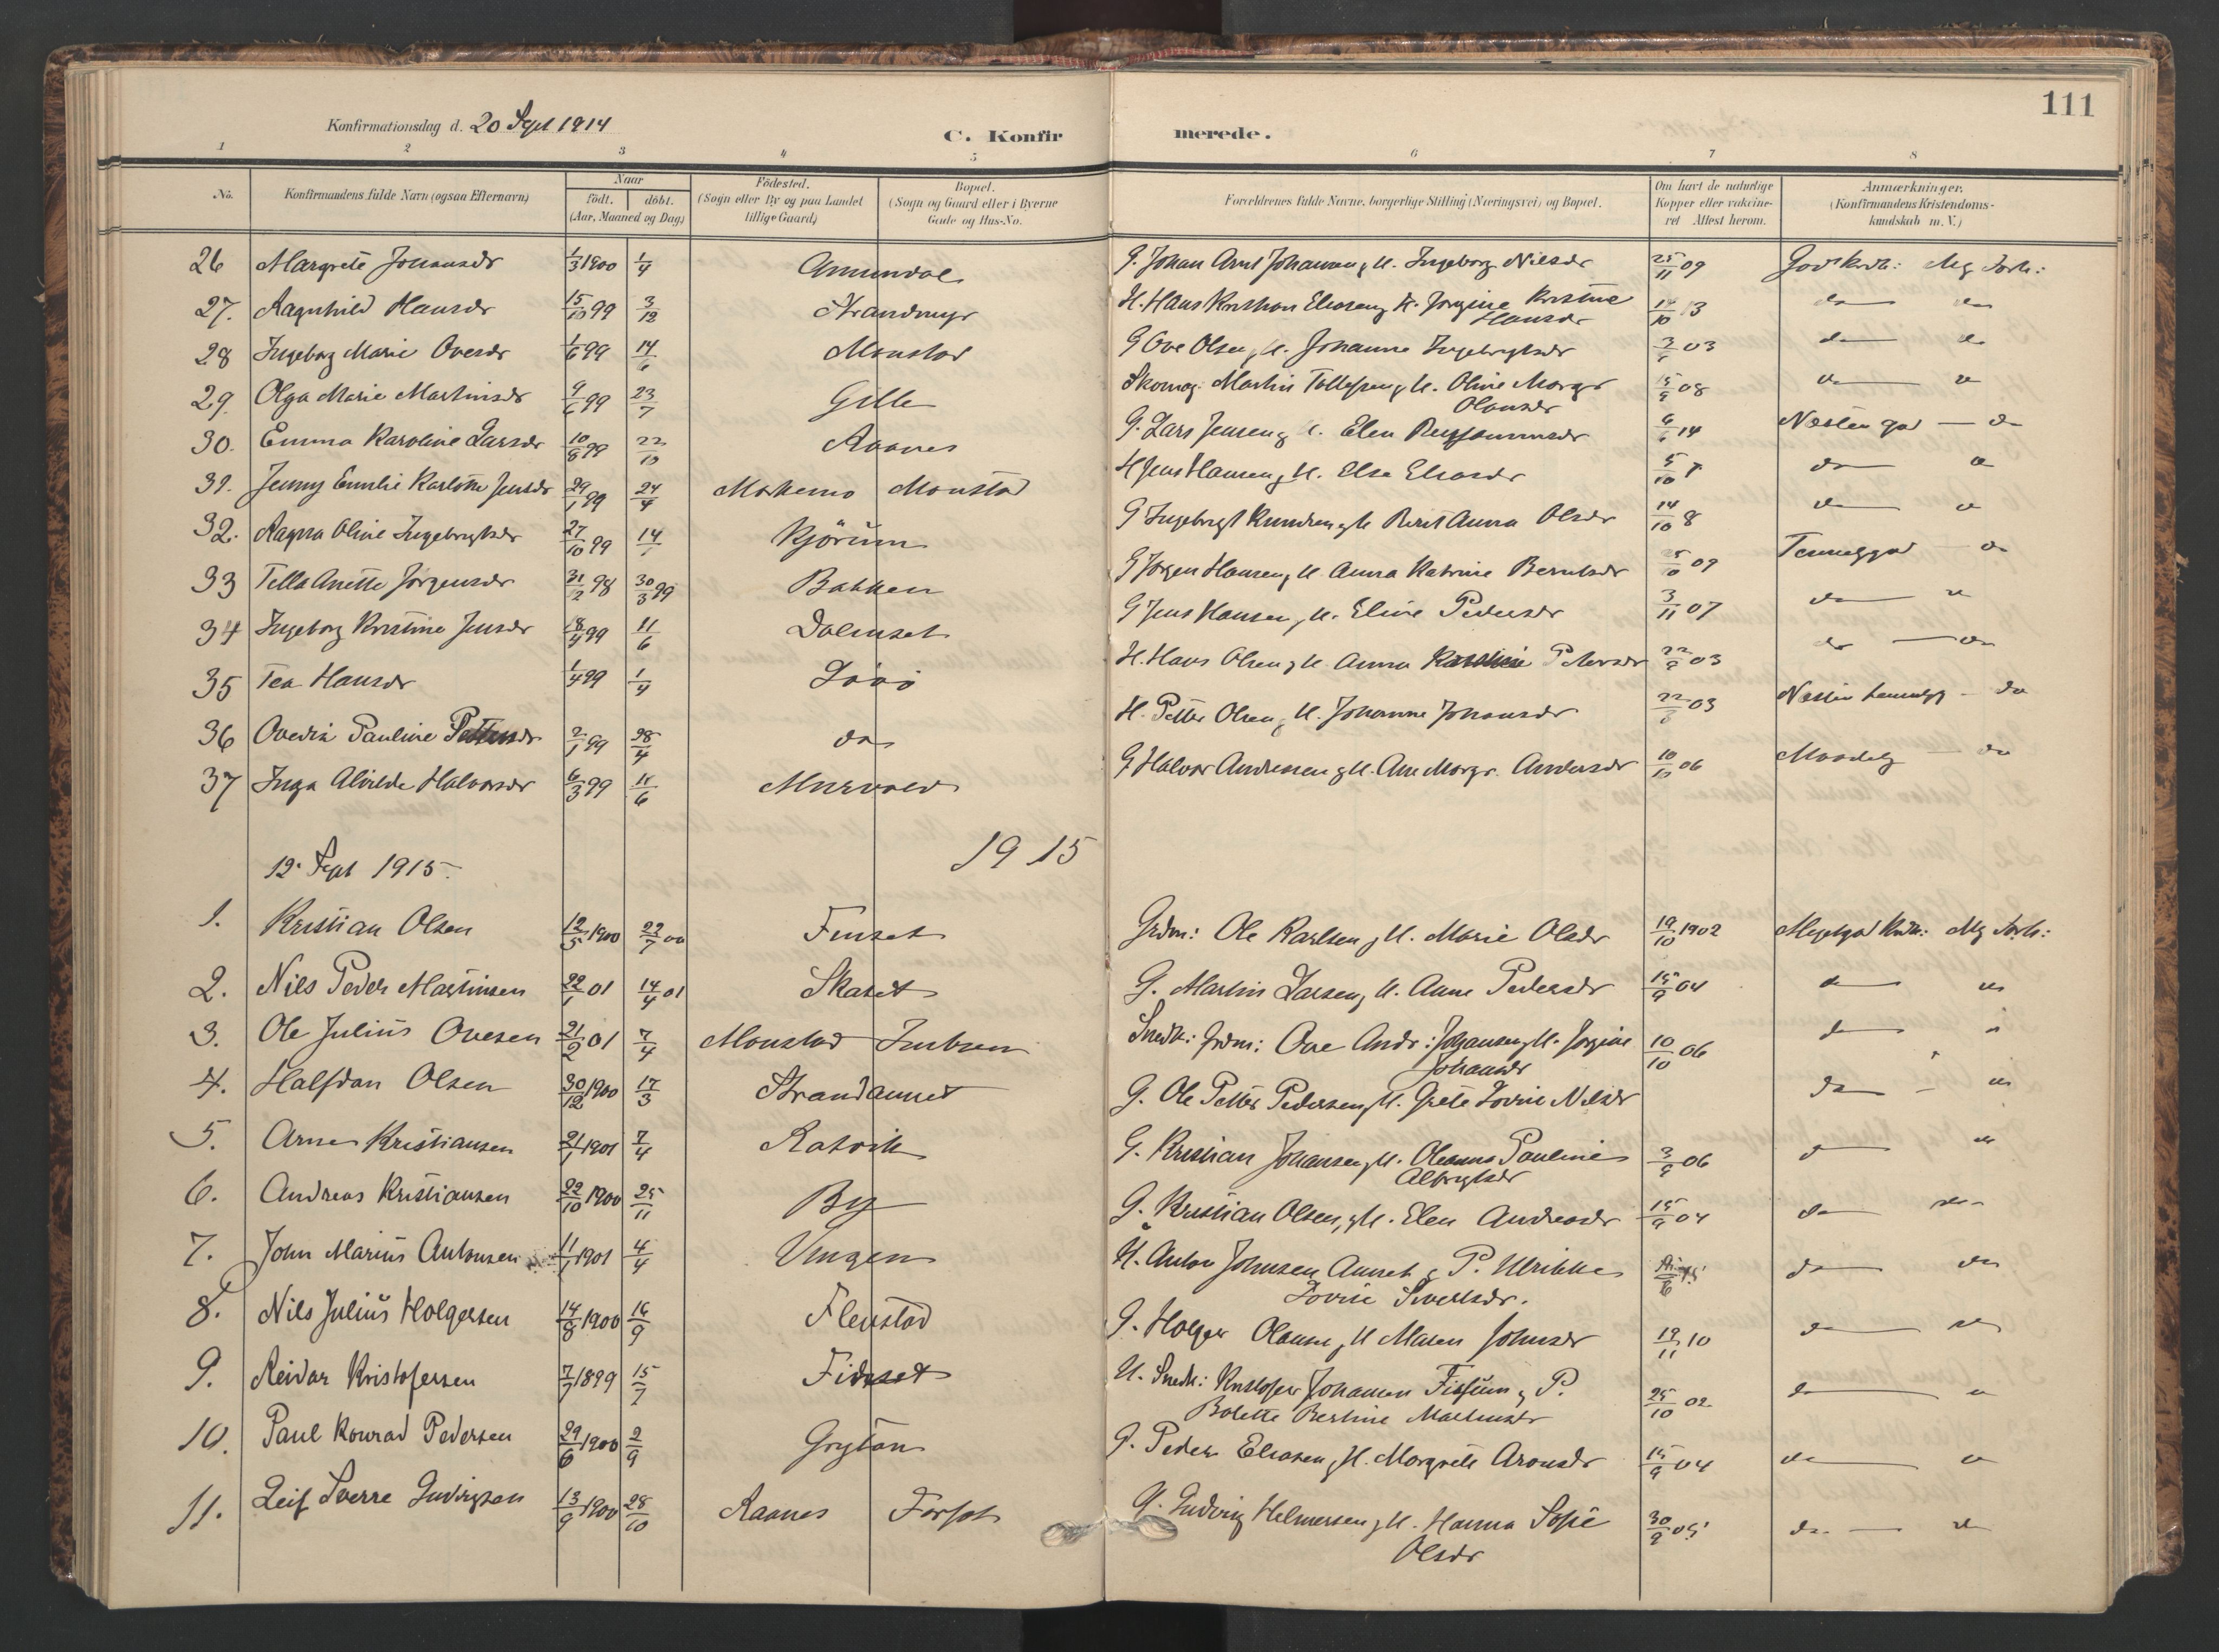 111
Konfirmationsdag d. 20 Sept 1914
C. Konfirmerede.
1 2 3 4 5 6 7 8
No. Konfirmandens fulde Navn (ogsaa Efternavn) Naar födt. döbt. (Aar, Maaned og Dag.) Födested. (Sogn eller By og paa Landet tillige Gaard) Bopæl. (Sogn og Gaard eller i Byerne Gade og Hus-No. Forældrenes fulde Navne, borgerlige Stilling (Næringsvei) og Bopæl. Om havt de naturlige Kopper eller vakcineret Attest herom. Anmærkninger. (Konfirmandens Kristendomskundskab m. V.)
26 Margrete Johansdr 1/3 1900 1/4 G. Johan Arnt Johansen, H. Ingeborg Nilsdr 25/11 09
27. Ragnhild Hansdr 15/10 99 3/12 Strandmyr H. Hans Kristian Eliasen, H. Jørgine Kristine
Hansdr 14/10 13 do do
28 Ingeborg Marie Ovesdr 1/6 99 14/6 Monstad G Ove Olsen, H. Johanne Ingebrigtsdr 03 do do
29. Olga Marie Martinsdr 9/6 99 23/7 Gille Skomag: Martin Tollefsen, H. Oline Margr
Olausdr 15/9 08 do do
30. Emma Karoline Larsdr 10/8 99 22/10 Aaanes G. Lars Jensen, H. Elen 14 Næsten god — do
31. Jenny Emilie Karlotte Jensdr 29/1 99 24/4 Monstad H Jens Hansen, H. Else Eliasdr 5/10 do do
32. Ragna Oline Ingebrigtsdr 27/10 99 14 Kjörum G Ingebrigt Knudsen, H Berit Anna Olsdr 14/10 8 do do
33 Tella Anette Jørgensdr 31/2 98 30/3 99 Bakken G Jørgen Hansen, H Anna Katrine Berntsdr 09 do
34 Ingeborg Kristine Jensdr 18/4 99 11/6 Dalenset G Jens Hansen, H. Eline Pedersdr 3/11 07 do do
35 Tea Hansdr 1/4 99 1/4 H. Hans Olsen, H Anna Karoline Petersdr 22/9 03 do do
36 Ovedia Pauline Pettersdr 2/1 99 28/4 do H. Petter Olsen, H. Johanne Johansdr 22 03 do
37 Inga Alvilde Halvorsdr 6/3 99 11/6 Murvold G Halvor Andersen, H. Ane Margr. Andersdr 10/10 06 do
1915
12. Sept 1915.
1. Kristian Olsen 12/5 1900 22/7 00 Finset Grdm: Ole Karlsen, H. Marie Olsdr 19/10 1902 Megetgod Kndsk:
2. Nils Peder Martinsen 22/1 01 14/4 01 Skaret G. Martin Larsen, H. Anne Pedersdr 15/9 04 do do
3. Ole Julius Ovesen 21/2 01 7/4 Monstad Snedk: Grdm: Ove Andr: Johansen, H. Jørgine
Johansdr 10/10 06 do
4. Halfdan Olsen 30/12 1900 17/3 Strandaunet G. Ole Petter Pedersen, H. Grete Lovise Nilsdr do do
5. Arne Kristiansen 21/1 1901 7/4 Ratvik G. Kristian Johansen, H. Oleanna Pauline
Albrigtsdr 3/9 06 do do
6. Andreas Kristiansen 22/10 1900 25/11 By G. Kristian Olsen, H. Elen Andreasdr 15/9 04 do do
7. John Marius Antonsen 11/1 1901 4/4 Vingen U. Anton Johnsen Aunet, P. Ulrikke
Lovise Sivertsdr. do do
8. Nils Julius Holgersen 14/8 1900 16/9 Flenstad G. Holger Olausen, H Maren Johnsdr 19/11 10 do do
9. Reidar Kristofersen 7/7 1899 15/7 U. Snedk: Kristofer Johansen, P.
Bolette Bertine Martinsdr 25/10 02 do do
10. Paul Konrad Pedersen 29/6 1900 2/9 Grytan G. Peder Eliasen, H. Margrete Aronsdr 15/9 04 do do
11. Leif Sverre Ludvigsen 13/9 1900 28/10 Raanes Forsot G. Ludvig Helmersen, H. Hanna Sofie
Olsdr 30/9 05 do do